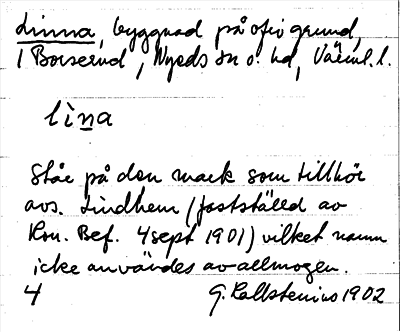 Linna, byggnad på ofri grund,
i Borserud, Nyeds sn o. hd, Värml. l.
lìna
Står på den mark som tillhör
avs. Lindhem (fastställd av
Kon. Bef. 4 sept 1901) vilket namn
icke användes av allmogen.
4 G. Kallstenius 1902